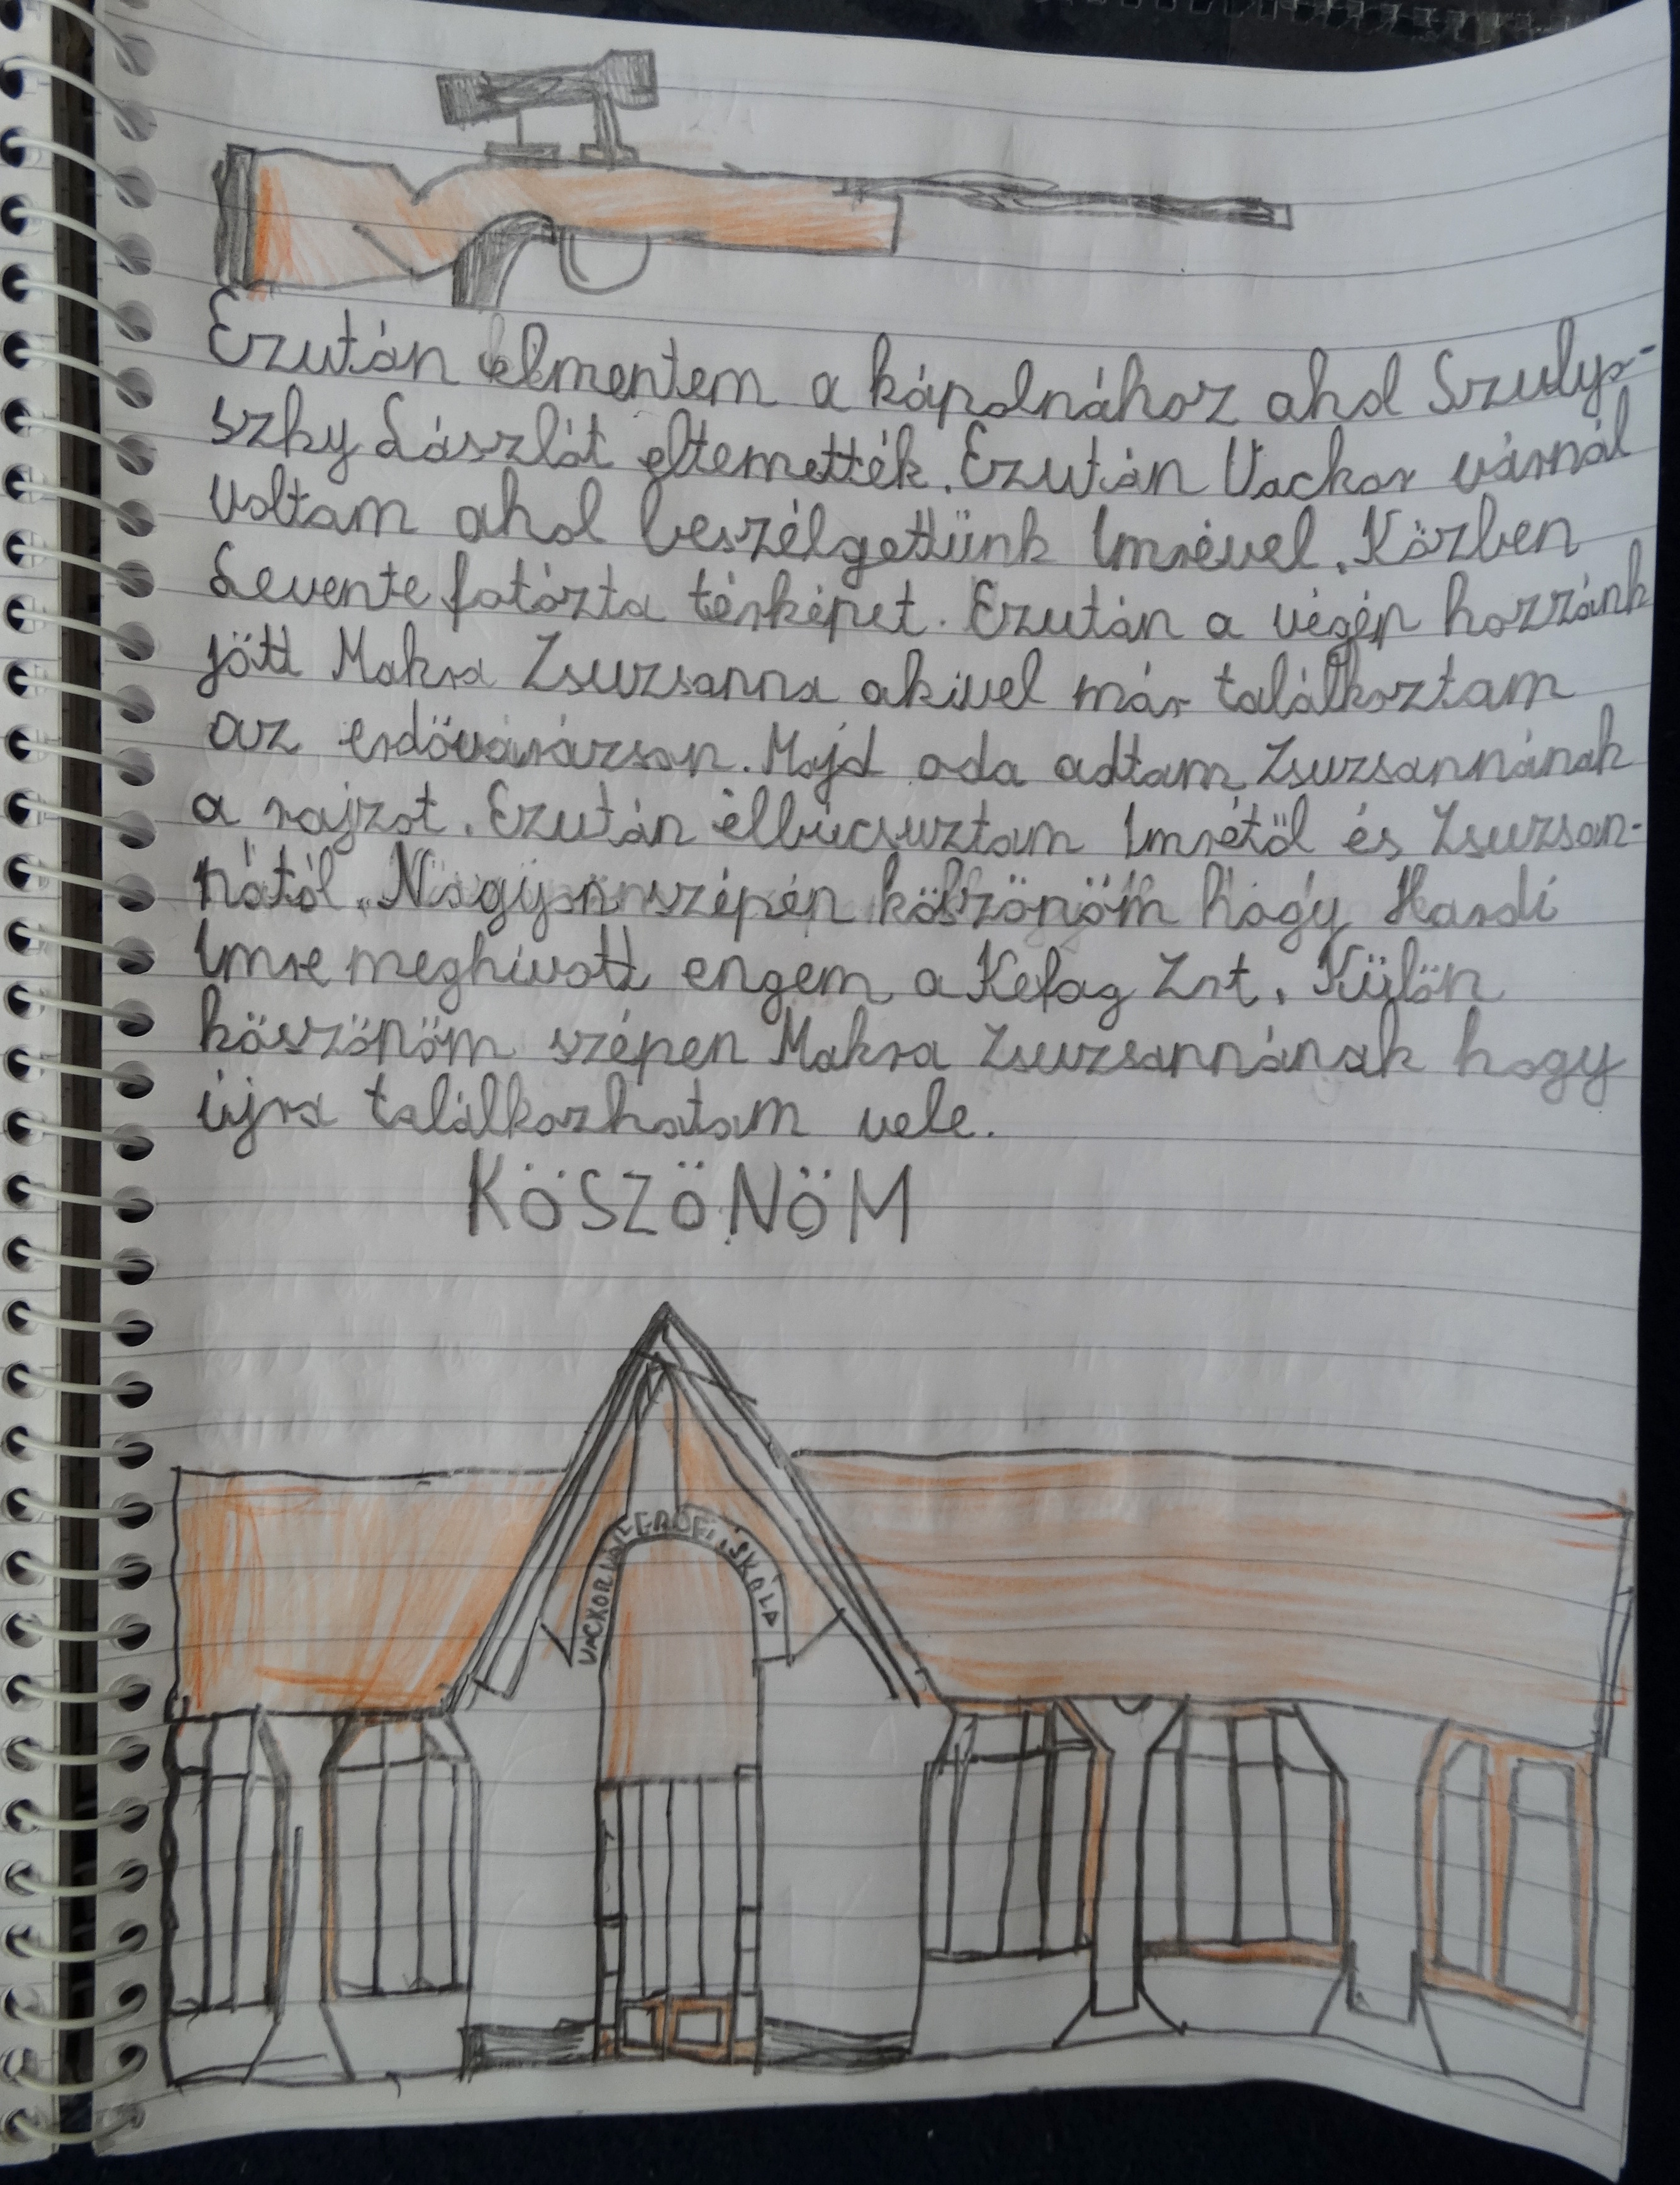 Ezután elmentem a kápolnához ahol Szulyo-
szky Lászlót eltemették. Ezután Vackor várnál
voltam ahol beszélgettünk Imrével. Közben
Levente fotózta térképet. Ezután a végén hozzánk
jött Makra Zsuzsanna akivel már találkoztam
az erdővarázson. Majd oda adtam Zsuzsannának
a rajzot. Ezután elbúcsuztam Imrétöl és Zsuzsan-
nától. Nagyon szépén köszönöm hogy Hardi
Imre meghivott engem a Kefag Zrt. Külön
köszönöm szépen Makra Zsuzsannának hogy
újra találkozhatam vele.
KÖSZÖNÖM
VACKORVÁR ERDEI ISKOLA